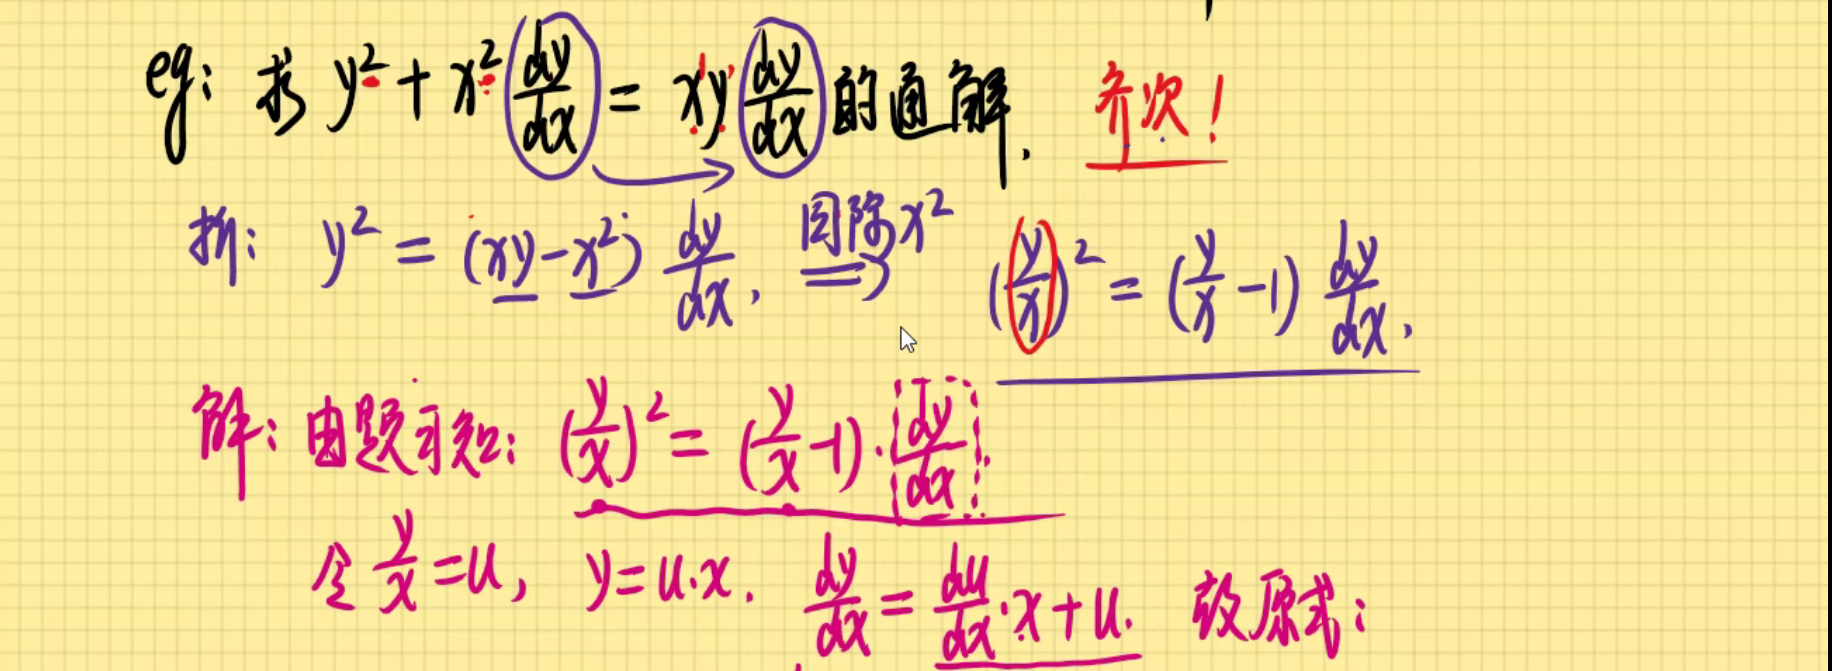 eg: 求 y² + x² dy/dx = xy dy/dx 的通解. 齐次!
析: y² = (xy - x²) dy/dx, 同除x² ⇒ (y/x)² = (y/x - 1) dy/dx.
解: 由题可知: (y/x)² = (y/x - 1)·dy/dx.
令 y/x = u, y = u·x. dy/dx = du/dx·x + u. 故原式: